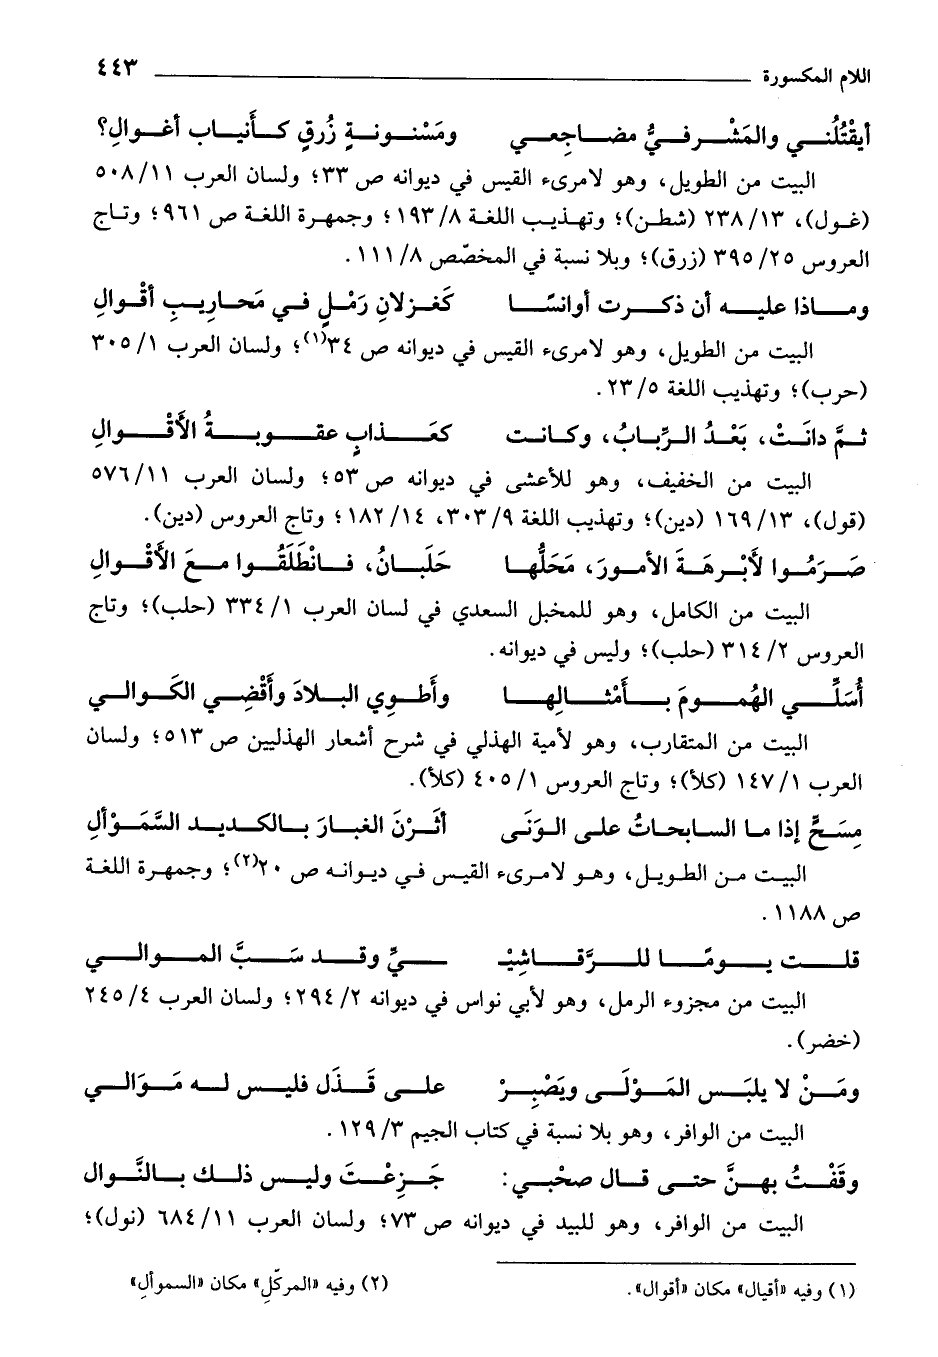 اللام المكسورة ٤٤٣
أيقْتُلُنـي والمَشْـرفـيُّ مضـاجِعـي ومَسْنـونـةٍ زُرقٍ كـأنيـاب أغـوالِ؟
البيت من الطويل، وهو لامرىء القيس في ديوانه ص ٣٣؛ ولسان العرب ٥٠٨/١١
(غول)، ٢٣٨/١٣ (شطن)؛ وتهذيب اللغة ١٩٣/٨؛ وجمهرة اللغة ص ٩٦١؛ وتاج
العروس ٣٩٥/٢٥ (زرق)؛ وبلا نسبة في المخصّص ١١١/٨.
ومـاذا عليـه أن ذكـرت أوانسًـا كَغـزلانِ رَمْـلٍ فـي مَحـارِيـبِ أقْوالِ
البيت من الطويل، وهو لامرىء القيس في ديوانه ص ٣٤(١)؛ ولسان العرب ٣٠٥/١
(حرب)؛ وتهذيب اللغة ٢٣/٥.
ثـمَّ دانَتْ، بَعْـدُ الـرِّبـابُ، وكـانـت كعَـذابٍ عقـوبـةُ الأَقْـوالِ
البيت من الخفيف، وهو للأعشى في ديوانه ص ٥٣؛ ولسان العرب ٥٧٦/١١
(قول)، ١٦٩/١٣ (دين)؛ وتهذيب اللغة ٣٠٣/٩، ١٨٢/١٤؛ وتاج العروس (دين).
صَـرَمُـوا لأَبْـرهَـةَ الأمـورَ، مَحَلُّهـا حَلَبـانُ، فـانْطَلَقُـوا مـعَ الأَقْـوالِ
البيت من الكامل، وهو للمخبل السعدي في لسان العرب ٣٣٤/١ (حلب)؛ وتاج
العروس ٣١٤/٢ (حلب)؛ وليس في ديوانه.
أُسَلِّـي الهُمـومَ بـأَمْثـالِهـا وأَطـوِي البـلادَ وأَقْضِـي الكَـوالـي
البيت من المتقارب، وهو لأمية الهذلي في شرح أشعار الهذليين ص ٥١٣؛ ولسان
العرب ١٤٧/١ (كلأ)؛ وتاج العروس ٤٠٥/١ (كلأ).
مِسَـحٍّ إذا مـا السـابحـاتُ علـى الـوَنَـى أثَـرْنَ الغبـارَ بـالكـديـد السَّمَـوْألِ
البيـت مـن الطـويـل، وهـو لامـرىء القيـس فـي ديـوانـه ص ٢٠(٢)؛ وجمهـرة اللغـة
ص ١١٨٨.
قلـت يـومًـا للـرَّقـاشِيْـ ـيِّ وقـد سَـبَّ المـوالـي
البيت من مجزوء الرمل، وهو لأبي نواس في ديوانه ٢٩٤/٢؛ ولسان العرب ٢٤٥/٤
(خضر).
ومَـنْ لا يلبَـس المَـوْلَـى ويَصْبِـرْ علـى قَـذَل فليـس لـه مَـوَالـي
البيت من الوافر، وهو بلا نسبة في كتاب الجيم ١٢٩/٣.
وقَفْـتُ بهـنَّ حتـى قـال صحْبـي: جَـزِعْـتَ وليـس ذلـك بـالنَّـوال
البيت من الوافر، وهو للبيد في ديوانه ص ٧٣؛ ولسان العرب ٦٨٤/١١ (نول)؛
(١) وفيه «أقيال» مكان «أقوال».
(٢) وفيه «المركّلِ» مكان «السموألِ»